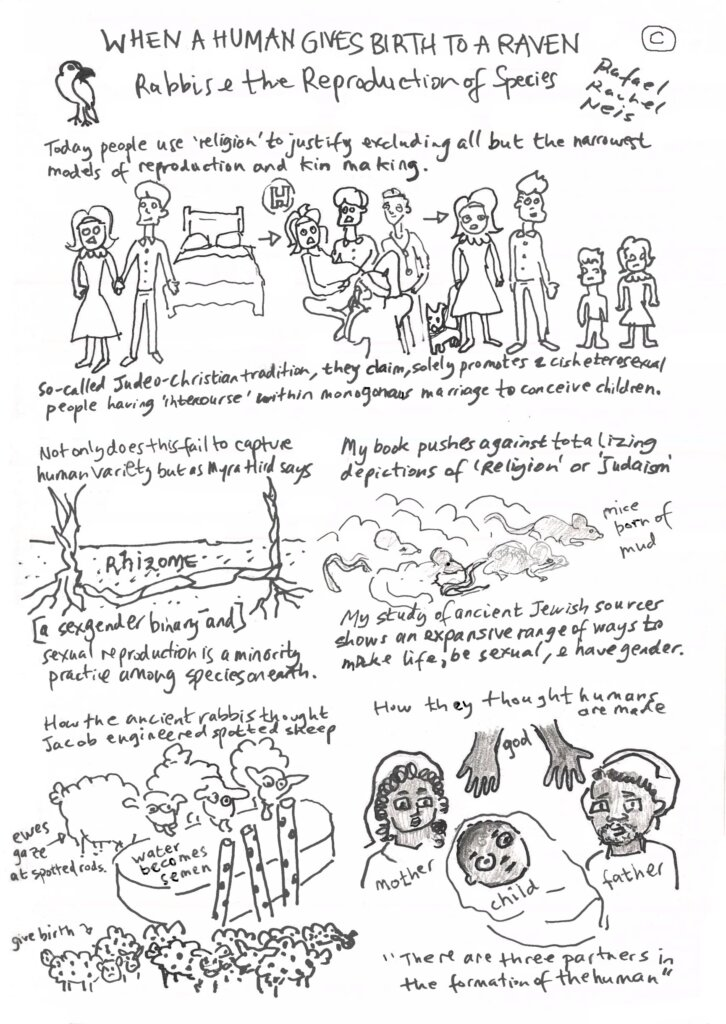 WHEN A HUMAN GIVES BIRTH TO A RAVEN
C
Rabbis & the Reproduction of Species
Rafael
Rachel
Neis
Today people use 'religion' to justify excluding all but the narrowest
models of reproduction and kin making.
H
So-called Judeo-Christian tradition, they claim, solely promotes 2 cisheterosexual
people having 'intercourse' within monogomous marriage to conceive children.
Not only does this fail to capture
human variety but as Myra Hird says
RhizomE
[a sexgender binary and]
sexual reproduction is a minority
practice among species on earth.
My book pushes against totalizing
depictions of 'Religion' or 'Judaism'
mice
born of
mud
My study of ancient Jewish sources
shows an expansive range of ways to
make life, be sexual, & have gender.
How the ancient rabbis thought
Jacob engineered spotted sheep
ewes
gaze
at spotted rods.
water
becomes
semen
give birth
How they thought humans
are made
god
mother
child
father
"There are three partners in
the formation of the human"